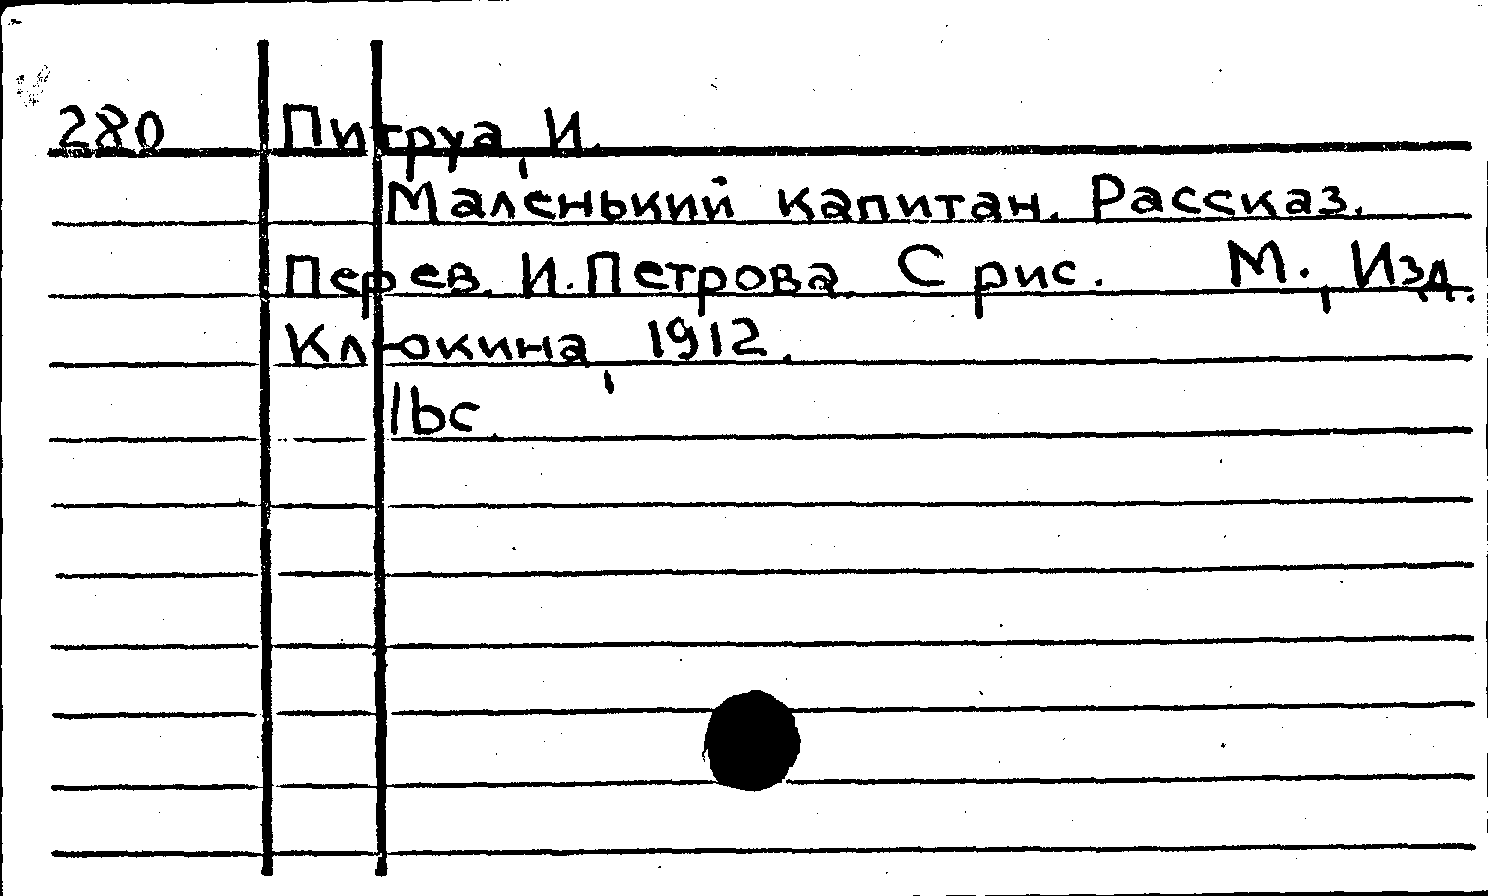 280 Питруа, И.
Маленький капитан. Рассказ.
Перев. И.Петрова С рис. М., Изд.
Клюкина, 1912.
16с.